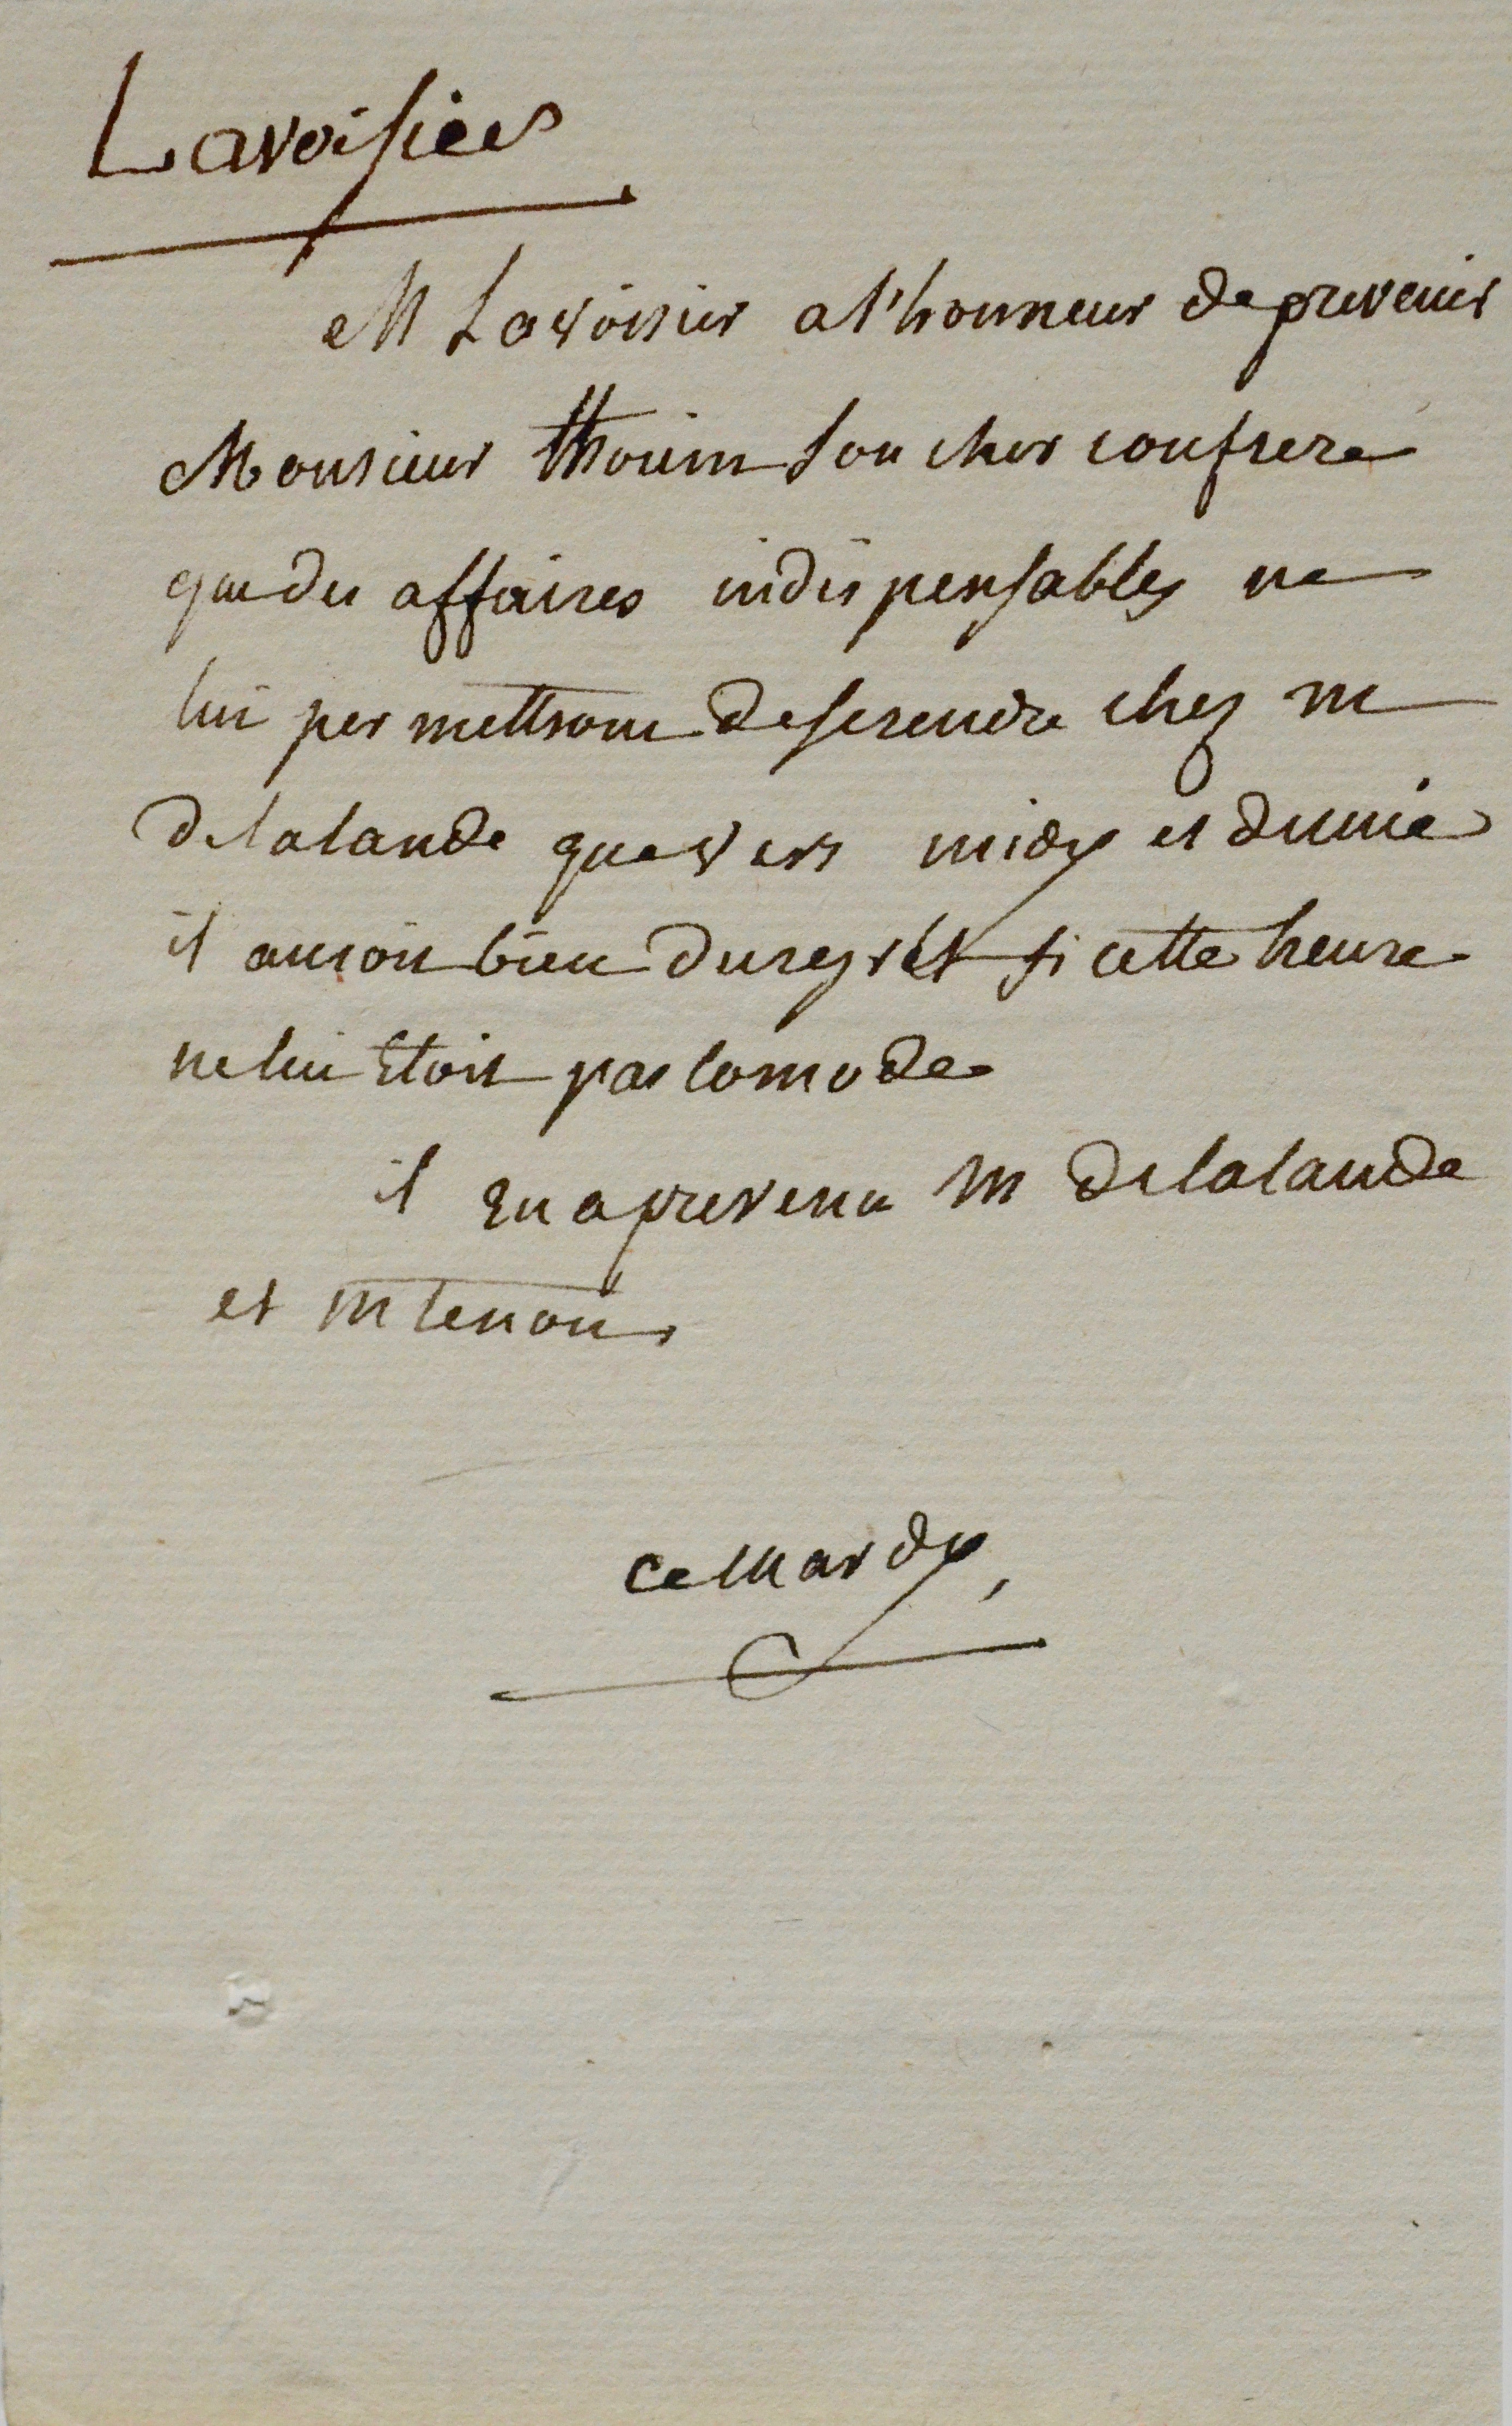 Lavoisier
M Lavoisier a l'honneur de prevenir
Monsieur thouin son cher confrere
que des affaires indispensables ne
lui permettront de se rendre chez m
delalande que vers midy et demie
il auroit bien du regret si cette heure
ne lui Etoit pas comode
il En a prevenu M delalande
et M tenon
ce mardy,